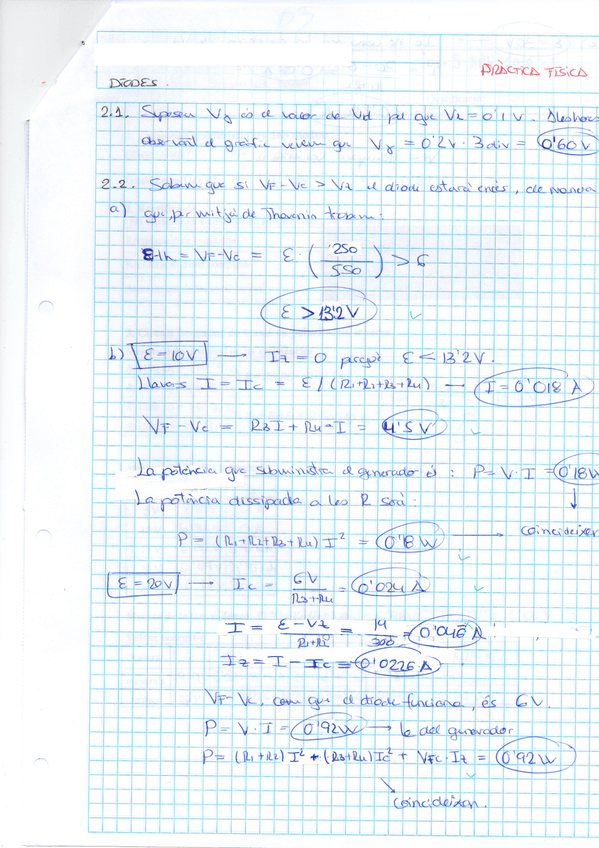 PRÀCTICA FÍSICA
DÍODES.
2.1. Suposem Vγ és el valor de Vd pel que VR = 0'1 V. Aleshores
observant el gràfic veiem que Vγ = 0'2V · 3 div = 0'60 V
2.2. Sabem que si VF-VC > VZ el díode estarà encès, de manera
a) que, per mitjà de Thevenin trobem:
Eth = VF-VC = ε · (250/550) > 6
ε > 13'2 V
b) ε = 10V → IZ = 0 perquè ε < 13'2 V.
Llavors I = IC = ε / (R1+R2+R3+R4) → I = 0'018 A
VF - VC = R3 I + R4 · I = 4'5 V
La potència que subministra el generador és : P = V · I = 0'18W
La potència dissipada a les R serà :
P = (R1+R2+R3+R4) I² = 0'18 W → coincideixen
ε = 20V → IC = 6V / R3+R4 = 0'024 A
I = ε-VZ / R1+R2 = 14 / 300 = 0'046 A
IZ = I - IC = 0'0226 A
VF-VC, com que el díode funciona, és 6V.
P = V · I = 0'92W → la del generador
P = (R1+R2) I² + (R3+R4) IC² + VFC · IZ = 0'92W
coincideixen.